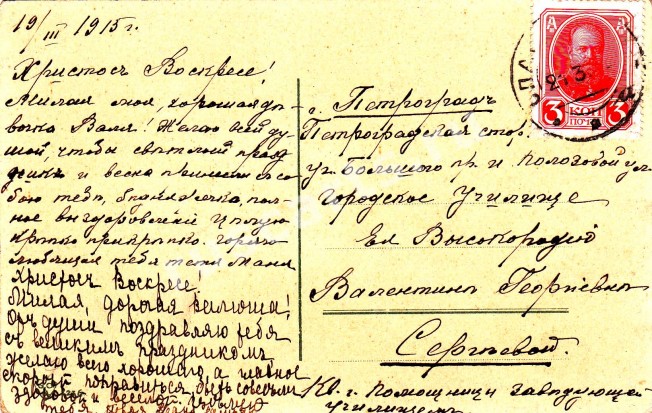 19/III 1915 г.
Христосъ Воскресе!
Милая моя, хорошая дѣ-
вочка Валя! Желаю всей ду-
шой, чтобы свѣтлый празд
никъ и весна принесли съ со
бою тебѣ, пол-
ное выздоровленіе. Цѣлую
крѣпко прикрѣпко. Горячо
любящая тебя тетя Маня
Христосъ Воскресе!
Милая, дорогая Валюша!
Отъ души поздравляю тебя
съ великимъ праздникомъ,
желаю всего хорошаго, а главное
скорѣй поправиться, быть совсѣмъ
здоровой и веселой. Цѣлую
тебя твоя
г. Петроградъ
Петроградская стор.
уг. Большого пр. и Полозовой ул.
Городское Училище
Ея Высокородію
Валентинѣ Георгіевнѣ
Сергѣевой.
Кв. г. Помощницы завѣдующей
училищемъ
3 КОП 3
ПОЧ